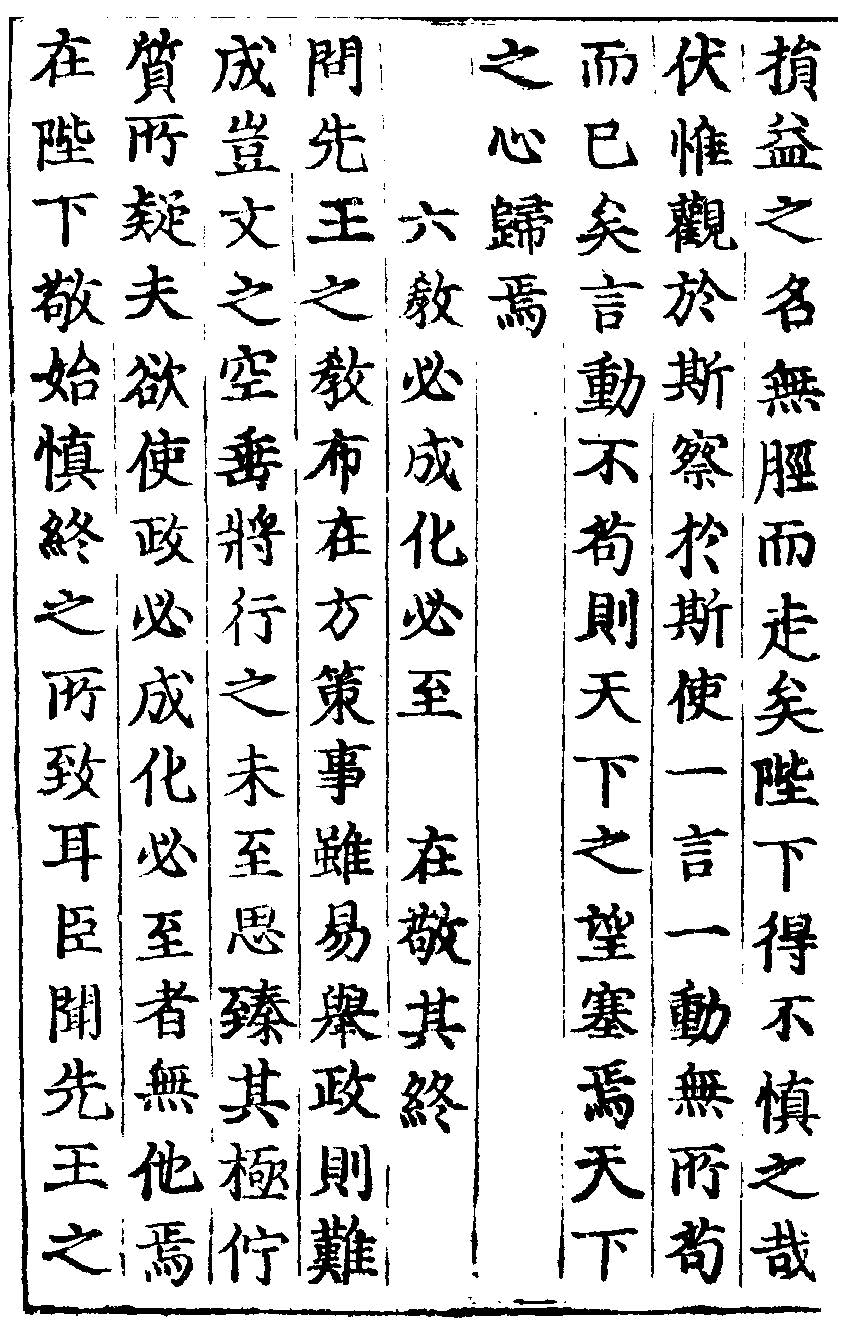 損益之名無脛而走矣陛下得不慎之哉
伏惟觀於斯察於斯使一言一動無所苟
而已矣言動不苟則天下之望塞焉天下
之心歸焉
六教必成化必至 在敬其終
問先王之教布在方策事雖易舉政則難
成豈文之空垂將行之未至思臻其極佇
質所疑夫欲使政必成化必至者無他焉
在陛下敬始慎終之所致耳臣聞先王之